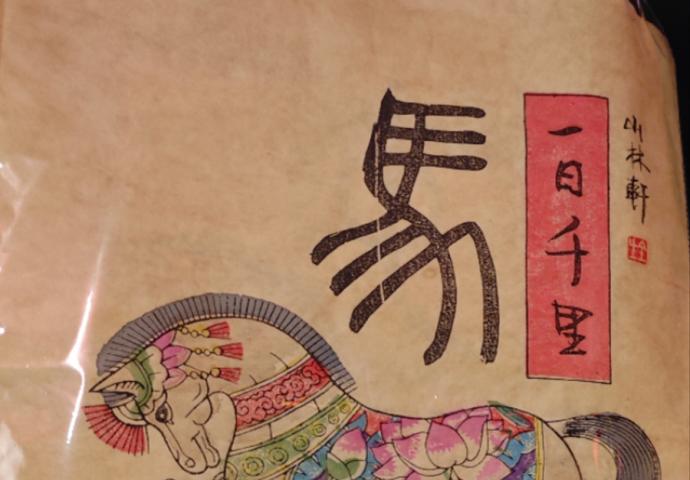 山林軒
一日千里
馬